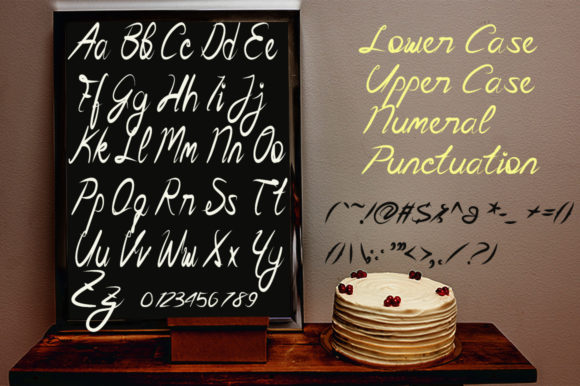 Aa Bb Cc Dd Ee
Ff Gg Hh Ii Jj
Kk Ll Mm Nn Oo
Pp Qq Rr Ss Tt
Uu Vv Ww Xx Yy
Zz 0123456789
Lower Case
Upper Case
Numeral
Punctuation
(`~!@#$%^& *-_ +=()
()|\;:'"'<>,./ ?)